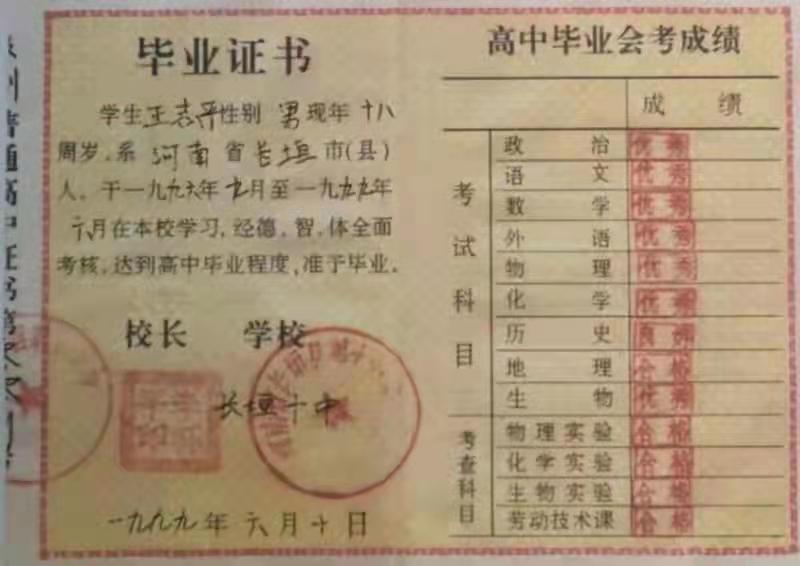 毕业证书
学生王志平性别 男现年 十八
周岁,系 河南省长垣市(县)
人。于一九九六年九月至一九九九年
六月在本校学习,经德,智,体全面
考核,达到高中毕业程度,准于毕业。
校长 学校
长垣十中
一九九九年六月十日
普通高中证书第
高中毕业会考成绩
成 绩
考试科目
政 治 优秀
语 文 优秀
数 学 优秀
外 语 优秀
物 理 优秀
化 学 优
历 史 良
地 理 合格
生 物 优秀
考查科目
物理实验 合格
化学实验 合格
生物实验 合格
劳动技术课 合格